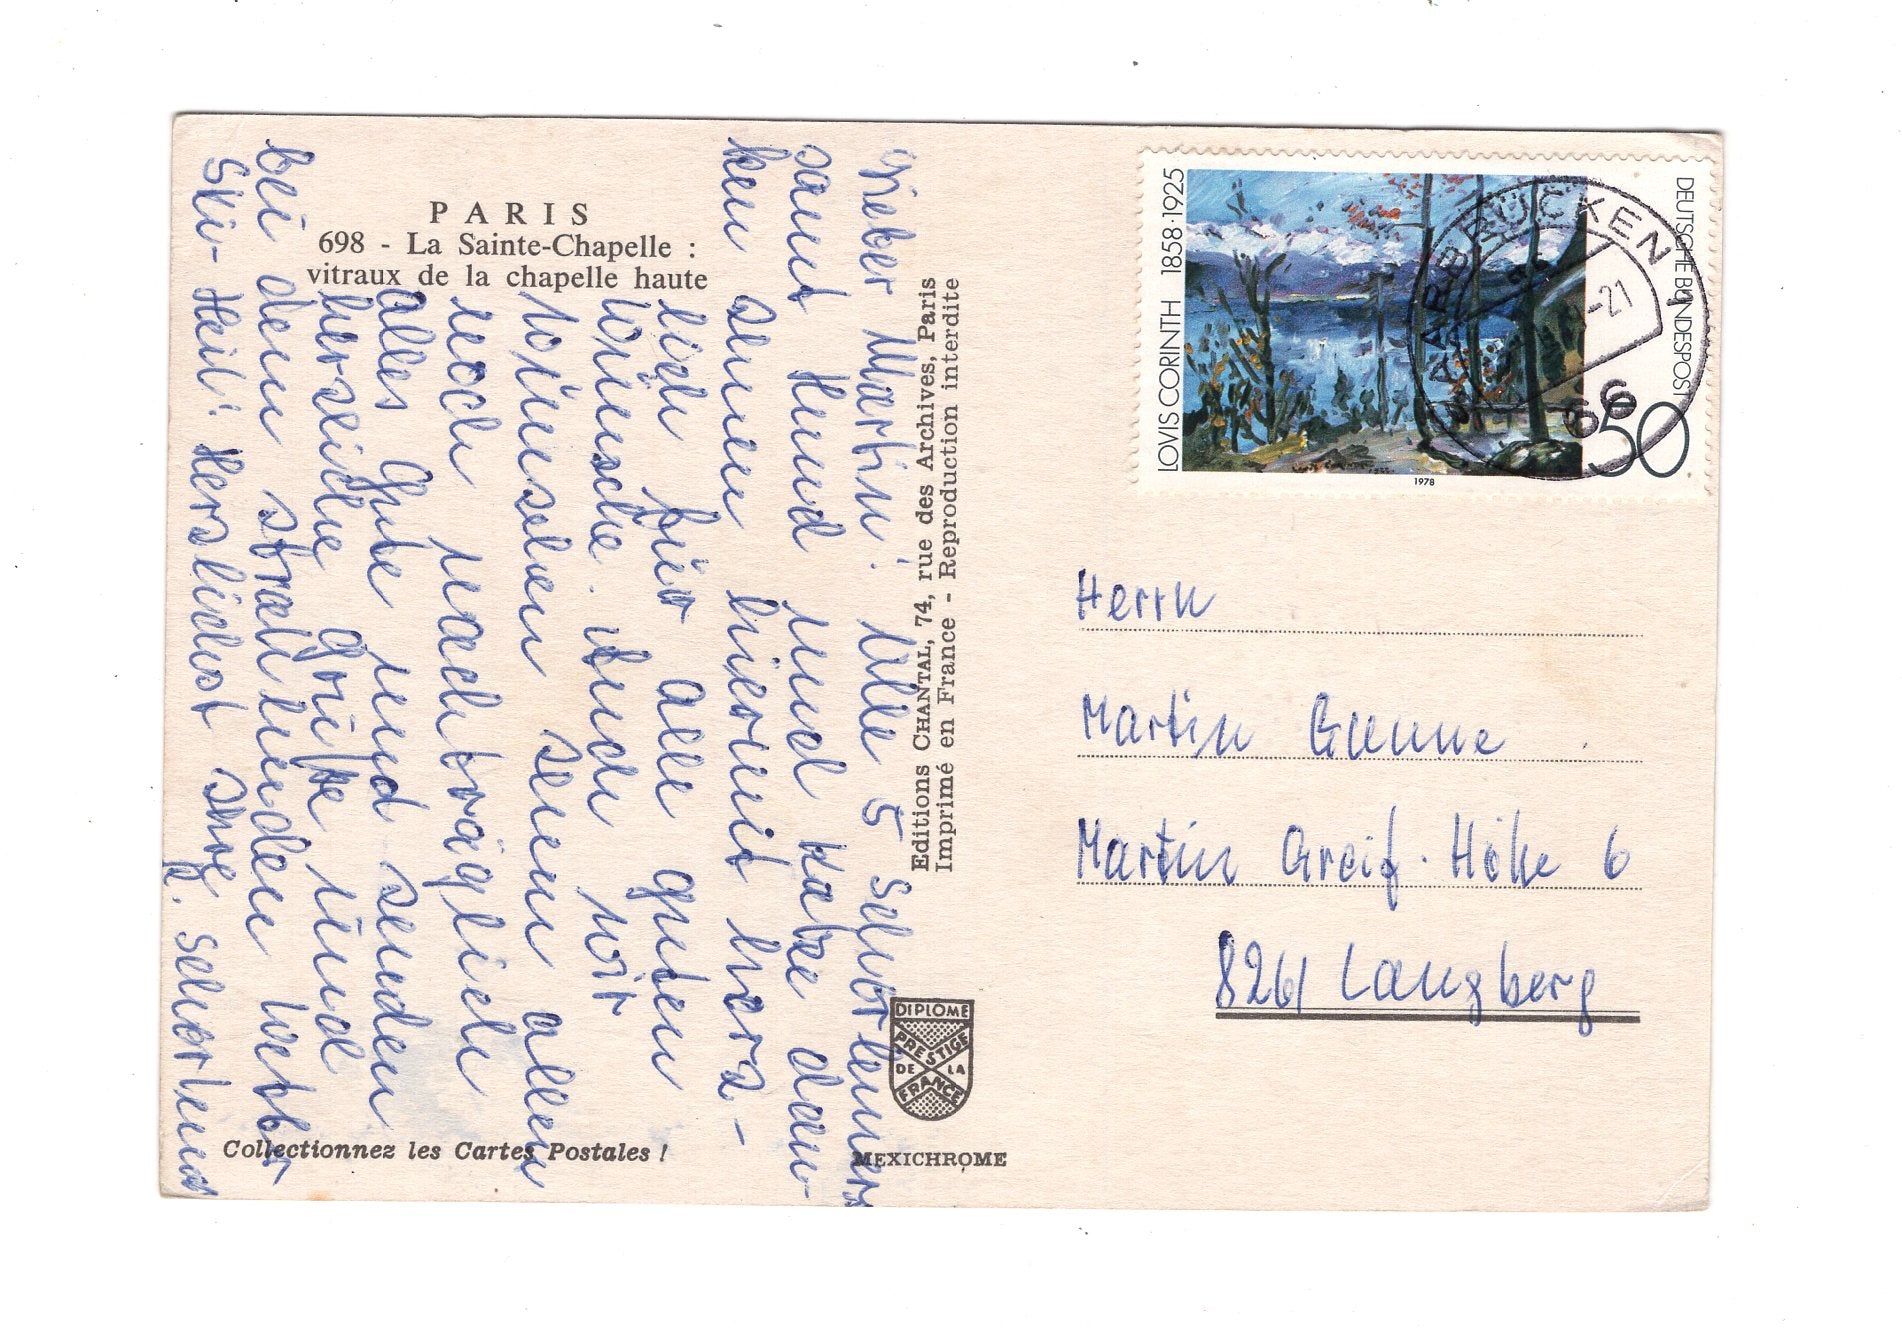 PARIS
698 - La Sainte-Chapelle :
vitraux de la chapelle haute
Lieber Martin! Alle 5 Schorlemers
samt Hund und Katze dan-
ken Ihnen hiermit herz-
lich für alle guten
Wünsche. Auch wir
wünschen Ihnen allen
noch nachträglich
alles Gute und senden
herzliche Grüße und
bei dem strahlenden Wetter
Ski-Heil! Herzlichst
Editions CHANTAL, 74, rue des Archives, Paris
Imprimé en France - Reproduction interdite
DIPLOME
PRESTIGE
DE LA
FRANCE
Collectionnez les Cartes Postales !
MEXICHROME
LOVIS CORINTH 1858·1925
DEUTSCHE BUNDESPOST
50
1978
SAARBRÜCKEN
-21
66
Herrn
Martin
Martin Greif. Höhe 6
8261